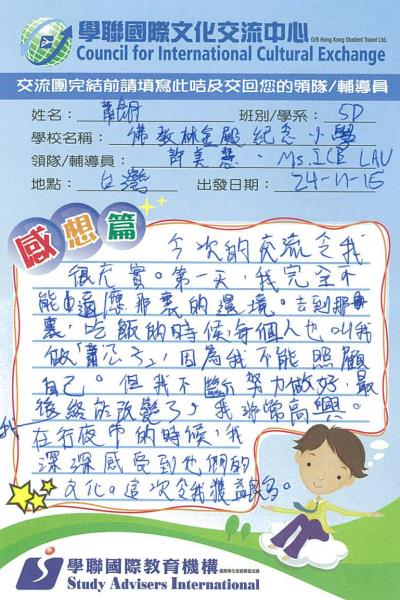 學聯國際文化交流中心
O/B Hong Kong Student Travel Ltd.
Council for International Cultural Exchange
交流團完結前請填寫此咭及交回您的領隊/輔導員
姓名： 蕭朗 班別/學系： 5D
學校名稱： 佛教林金殿紀念小學
領隊/輔導員： 許美慧、Ms. ICE LAU
地點： 台灣 出發日期： 24-11-15
感想篇
今次的交流令我
很充實。第一天，我完全不
能適應那裏的環境。去到那
裏，吃飯的時候每個人也叫我
做「蕭公子」，因為我不能照顧
自己。但我不斷努力做好，最
後終於改變了，我非常高興。
我在行夜市的時候，我
深深感受到他們的
文化。這次令我獲益良多。
學聯國際教育機構
Study Advisers International